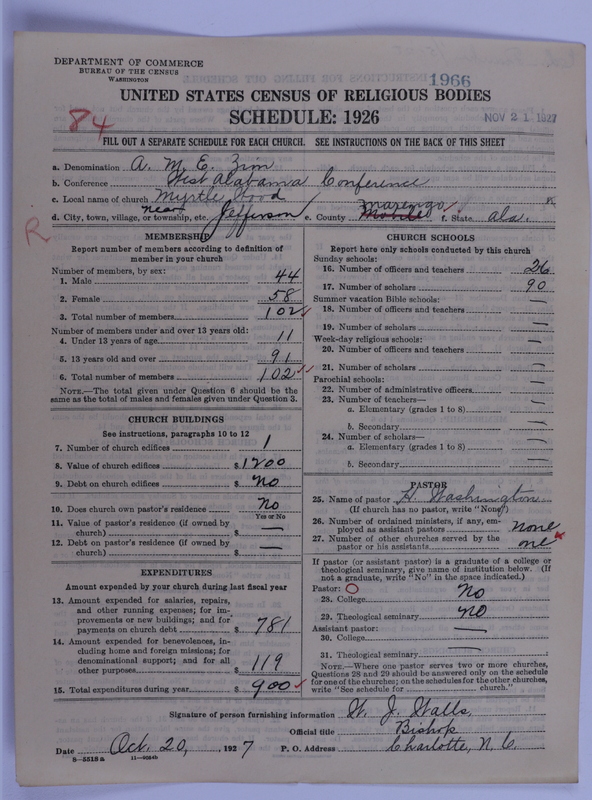 DEPARTMENT OF COMMERCE
BUREAU OF THE CENSUS
WASHINGTON
1966
UNITED STATES CENSUS OF RELIGIOUS BODIES
SCHEDULE: 1926
NOV 21 1927
84
FILL OUT A SEPARATE SCHEDULE FOR EACH CHURCH. SEE INSTRUCTIONS ON THE BACK OF THIS SHEET
a. Denomination A. M. E. Zion
b. Conference West Alabama Conference
c. Local name of church Myrtle Wood
d. City, town, village, or township, etc. near Jefferson e. County Marengo Mobile f. State Ala.
R
MEMBERSHIP
Report number of members according to definition of
member in your church
Number of members, by sex:
1. Male 44
2. Female 58
3. Total number of members 102
Number of members under and over 13 years old:
4. Under 13 years of age 11
5. 13 years old and over 91
6. Total number of members 102
NOTE.—The total given under Question 6 should be the
same as the total of males and females given under Question 3.
CHURCH BUILDINGS
See instructions, paragraphs 10 to 12
7. Number of church edifices 1
8. Value of church edifices $ 1200
9. Debt on church edifices $ No
10. Does church own pastor's residence No
Yes or No
11. Value of pastor's residence (if owned by
church) $ —
12. Debt on pastor's residence (if owned by
church) $ —
EXPENDITURES
Amount expended by your church during last fiscal year
13. Amount expended for salaries, repairs,
and other running expenses; for im-
provements or new buildings; and for
payments on church debt $ 781
14. Amount expended for benevolences, in-
cluding home and foreign missions; for
denominational support; and for all
other purposes $ 119
15. Total expenditures during year $ 900
CHURCH SCHOOLS
Report here only schools conducted by this church
Sunday schools:
16. Number of officers and teachers 26
17. Number of scholars 90
Summer vacation Bible schools:
18. Number of officers and teachers —
19. Number of scholars —
Week-day religious schools:
20. Number of officers and teachers —
21. Number of scholars —
Parochial schools:
22. Number of administrative officers —
23. Number of teachers—
a. Elementary (grades 1 to 8) —
b. Secondary —
24. Number of scholars—
a. Elementary (grades 1 to 8) —
b. Secondary —
PASTOR
25. Name of pastor H. Washington
(If church has no pastor, write "None")
26. Number of ordained ministers, if any, em-
ployed as assistant pastors none
27. Number of other churches served by the
pastor or his assistants one
If pastor (or assistant pastor) is a graduate of a college or
theological seminary, give name of institution below. (If
not a graduate, write "No" in the space indicated.)
Pastor:
28. College No
29. Theological seminary No
Assistant pastor:
30. College —
31. Theological seminary
NOTE.—Where one pastor serves two or more churches,
Questions 28 and 29 should be answered only on the schedule
for one of the churches; on the schedules for the other churches,
write "See schedule for church."
Signature of person furnishing information W. J. Walls.
Official title Bishop
Date Oct. 20, 1927 P. O. Address Charlotte, N. C.
8—5518a 11—9084b